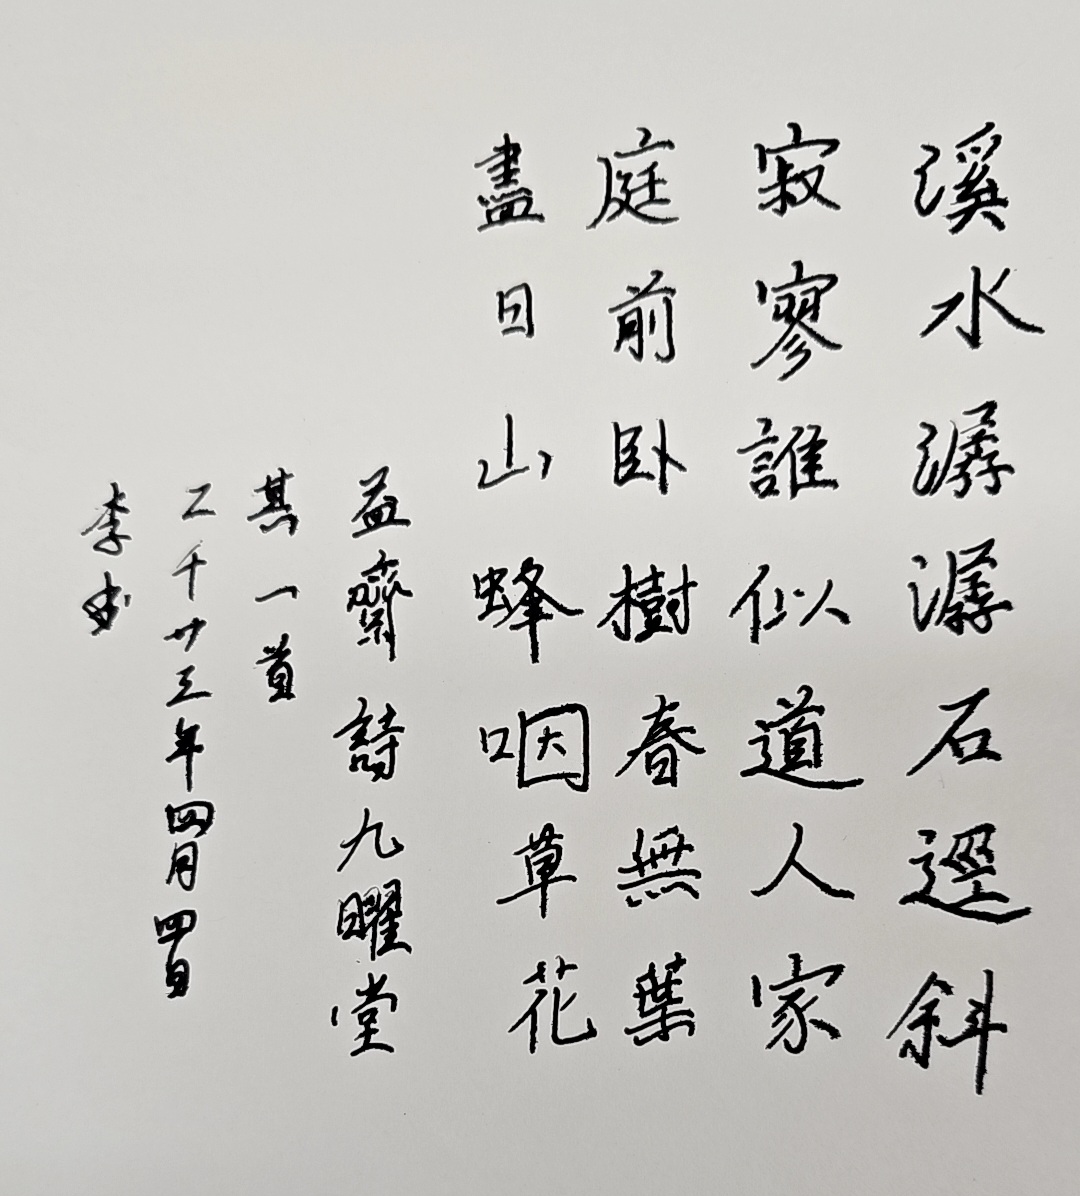 溪水潺潺石逕斜
寂寥誰似道人家
庭前卧樹春無葉
盡日山蜂咽草花
益齋詩九曜堂
其一首
二千廿三年四月四日
李